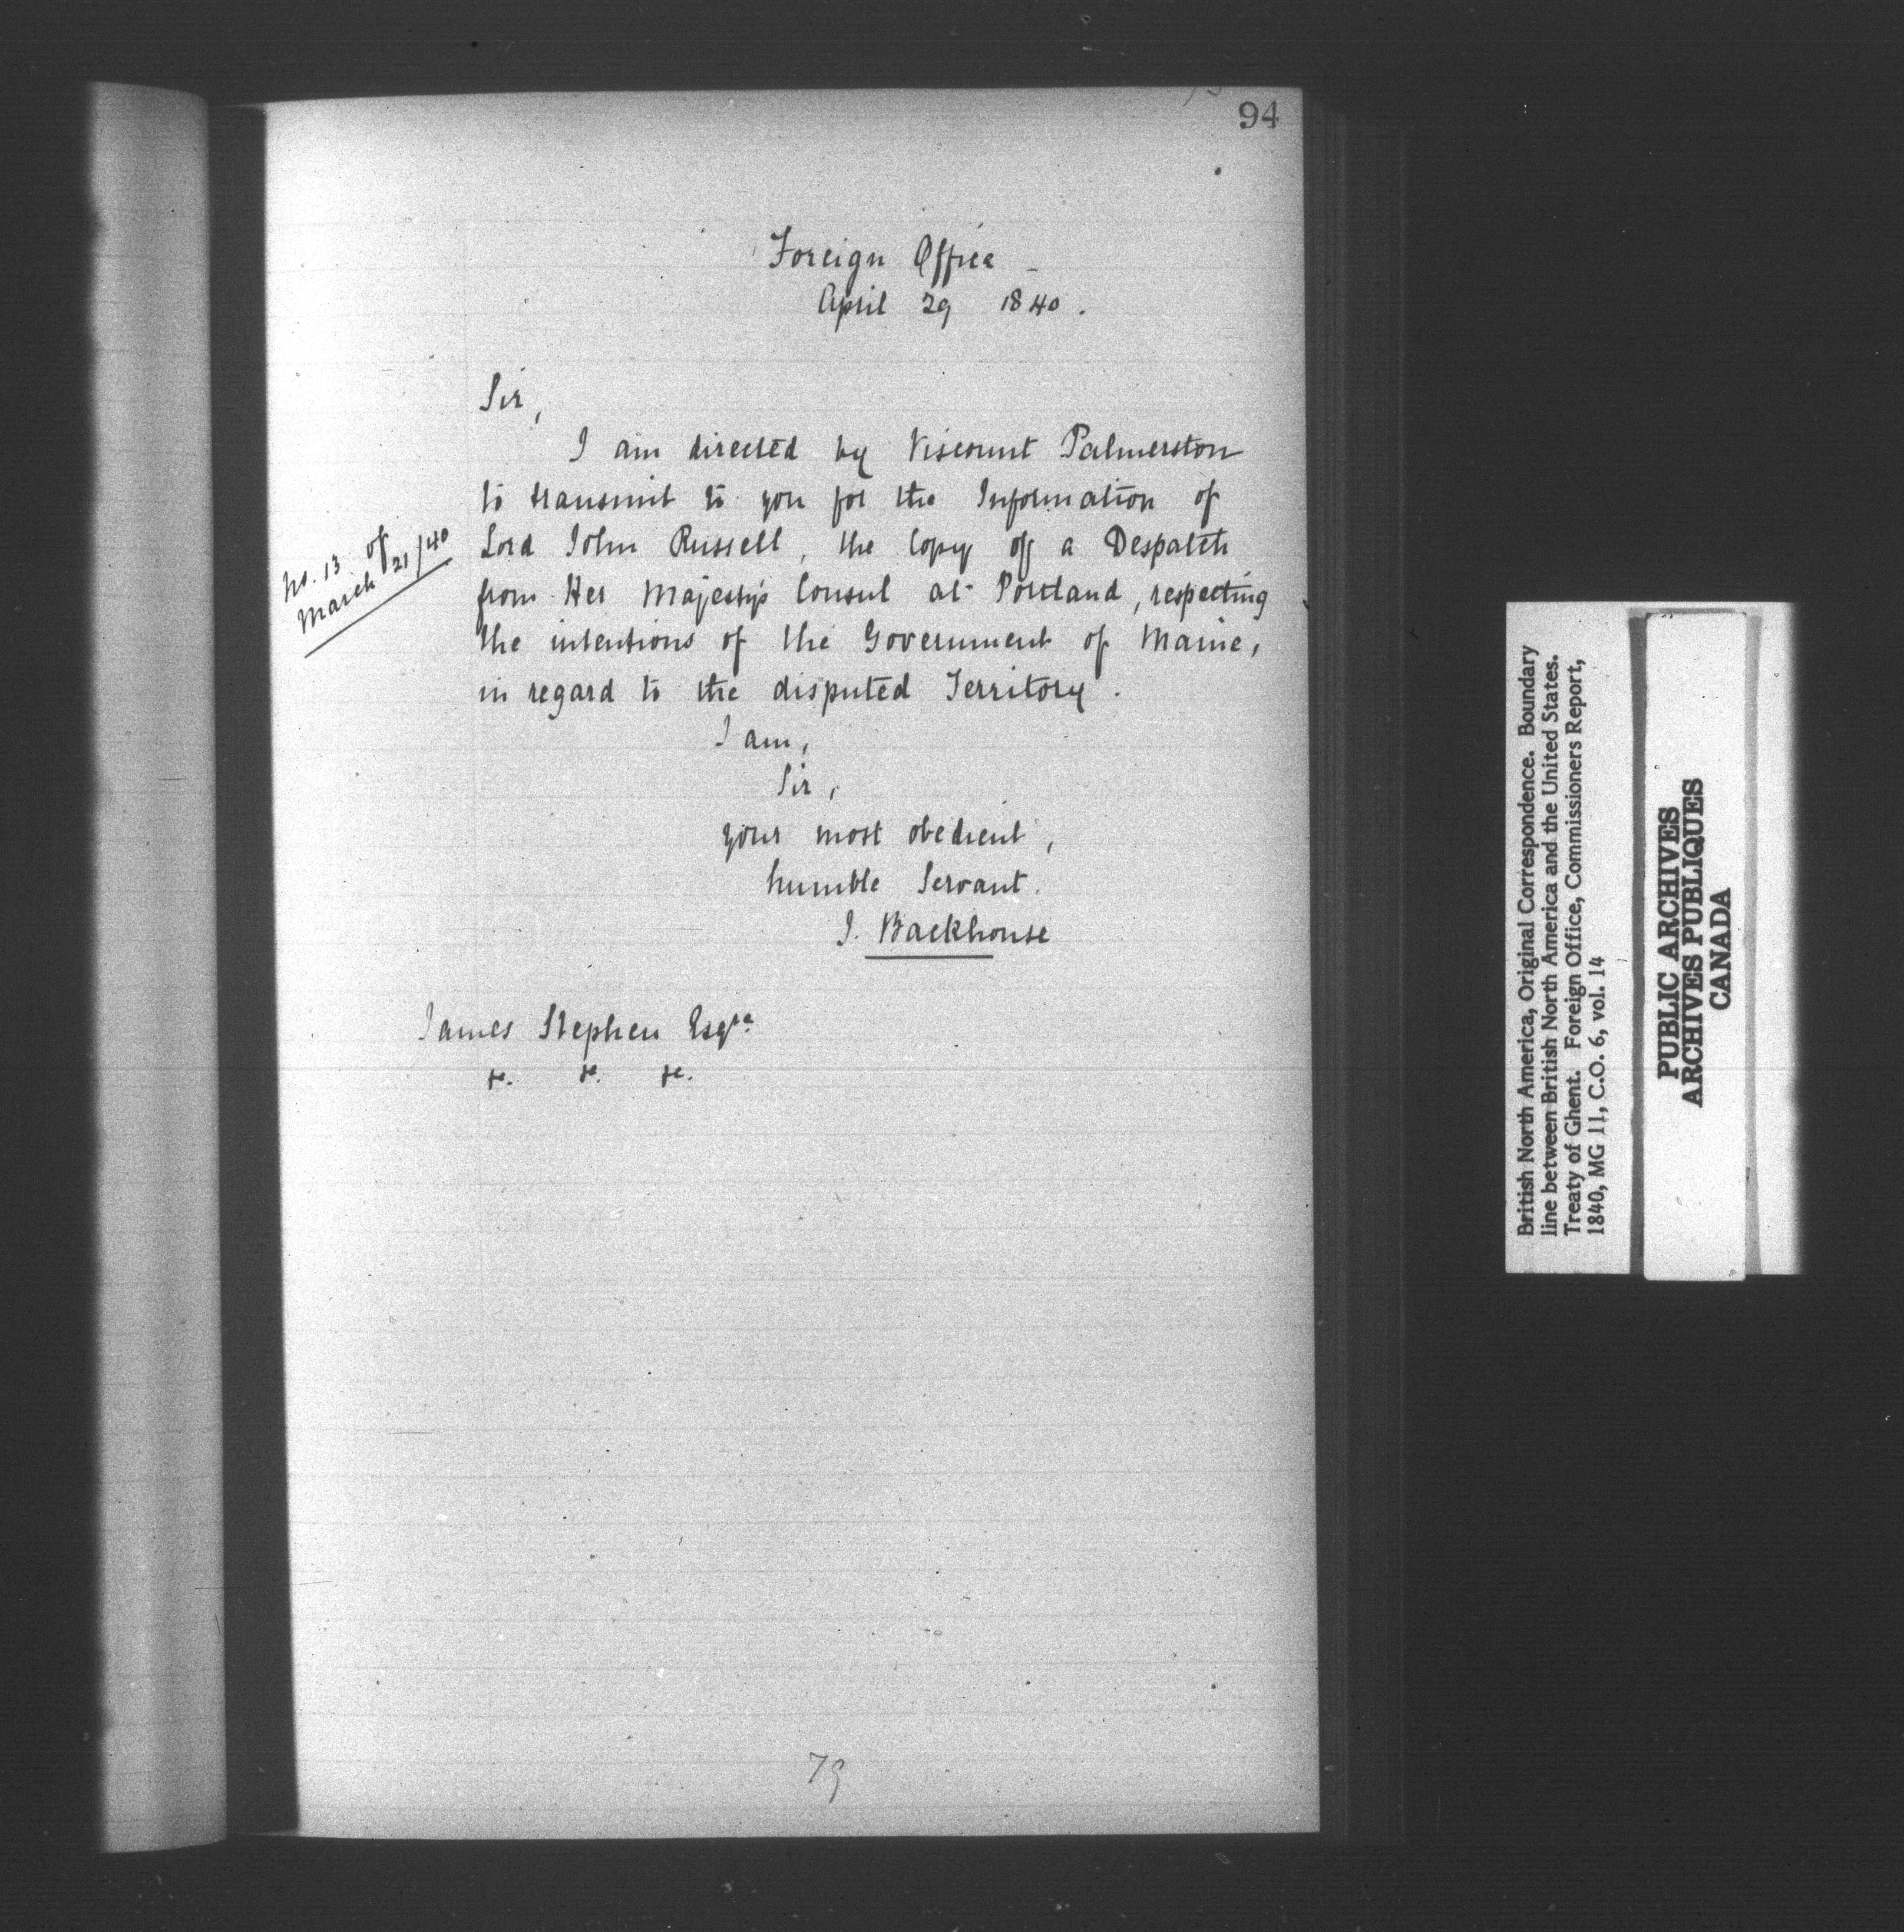 94
Foreign Office -
April 29 1840.
Sir,
I am directed by Viscount Palmerston
to transmit to you for the Information of
Lord John Russell, the Copy of a Despatch
from Her Majesty's Consul at Portland, respecting
the intentions of the Government of Maine,
in regard to the disputed Territory.
No. 13 of
March 21/40
I am,
Sir,
your most obedient,
humble Servant.
J. Backhouse
James Stephen Esqre
&c. &c. &c.
79
British North America, Original Correspondence. Boundary
line between British North America and the United States.
Treaty of Ghent. Foreign Office, Commissioners Report,
1840, MG 11, C.O. 6, vol. 14
PUBLIC ARCHIVES
ARCHIVES PUBLIQUES
CANADA